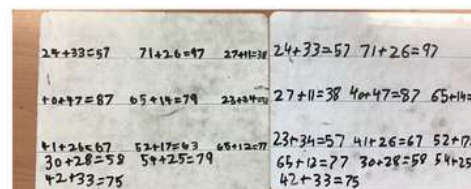 24+33=57 71+26=97 27+11=38
40+47=87 65+14=79 23+34=57
41+26=67 52+17=63 65+12=77
30+28=58 54+25=79
42+33=75
24+33=57 71+26=97
27+11=38 40+47=87 65+14=
23+34=57 41+26=67 52+17
65+12=77 30+28=58 54+25
42+33=75